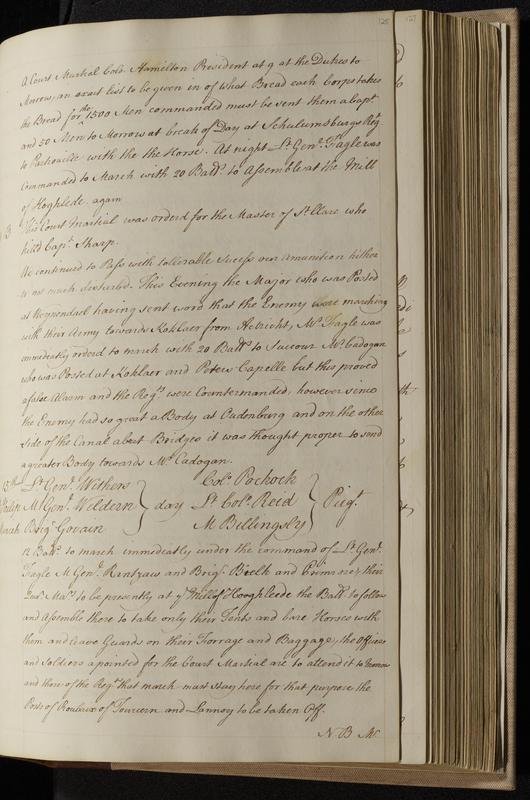 125
127
A Court Martial Colo. Hamilton President at 9 at the Dukes to
Morrow, an exact list to be given in of what Bread each Corps takes
the Bread for the 1500 Men commanded must be sent them a Capt.
and 50 Men to Morrow at break of Day at Schulumsburgs Regt.
to Patrouille with the the Horse. At night Lt. Genl. Fagle was
Commanded to March with 20 Batts. to Assemble at the Mill
of Hoghlede. again
NB This Court Martial was orderd for the Master of St. Clare who
killd Capt. Sharp.
We continued to Pass with tollerable Sucess our Amunition hither
to not much desturbd. This Evening the Major who was Posted
at Weynendael having sent word that the Enemy were marching
with their Army towards Koklaer from Hetricht, Mr. Fagle was
immediatly orderd to march with 20 Batts. to Succour Mr. Cadogan
who was Posted at Koklaer and Peteu Capelle but this proved
a false Alarm and the Regts. were Countermanded, however since
the Enemy had so great a Body at Oudenburg and on the other
side of the Canal abt. Bridges it was thought proper to send
a greater Body towards Mr. Cadogan.
Lt. Genl. Withers Colo. Pocock
M. Genl. Weldern day Lt. Colo. Reid Pigt.
March Brigr. Govain M. Billingsly
12 Batts. to march immediatly under the command of Lt. Genl.
Fagle M. Genl. Rantzaus and Brigr. Bielk and their
Qur. Mars. to be presently at ye Mill of Hooghleede the Batts. to follow
and Assemble there to take only their Tents and bare Horses with
them and leave Guards on their Forrage and Baggage, the Officers
and Soldiers apointed for the Court Martial are to attend it to Morrow
and those of the Regts. that march must stay here for that purpose the
Posts of Roulaix of Tourcorn and Lannoy to be taken Off.
NB Mr.